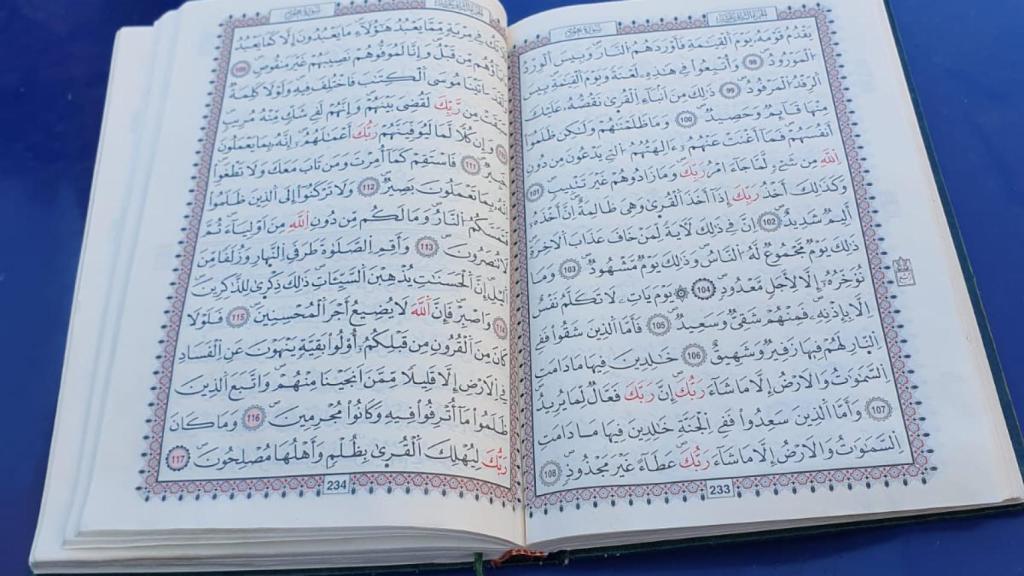 سورة هود
يَقْدُمُ قَوْمَهُۥ يَوْمَ ٱلْقِيَٰمَةِ فَأَوْرَدَهُمُ ٱلنَّارَ وَبِئْسَ ٱلْوِرْدُ
ٱلْمَوْرُودُ ٩٨ وَأُتْبِعُوا۟ فِى هَٰذِهِۦ لَعْنَةً وَيَوْمَ ٱلْقِيَٰمَةِ بِئْسَ
ٱلرِّفْدُ ٱلْمَرْفُودُ 99 ذَٰلِكَ مِنْ أَنۢبَآءِ ٱلْقُرَىٰ نَقُصُّهُۥ عَلَيْكَ
مِنْهَا قَآئِمٌ وَحَصِيدٌ 100 وَمَا ظَلَمْنَٰهُمْ وَلَٰكِن ظَلَمُوٓا۟
أَنفُسَهُمْ فَمَآ أَغْنَتْ عَنْهُمْ ءَالِهَتُهُمُ ٱلَّتِى يَدْعُونَ مِن دُونِ
ٱللَّهِ مِن شَىْءٍ لَّمَّا جَآءَ أَمْرُ رَبِّكَ وَمَا زَادُوهُمْ غَيْرَ تَتْبِيبٍ 101
وَكَذَٰلِكَ أَخْذُ رَبِّكَ إِذَآ أَخَذَ ٱلْقُرَىٰ وَهِىَ ظَٰلِمَةٌ إِنَّ أَخْذَهُۥٓ
أَلِيمٌ شَدِيدٌ 102 إِنَّ فِى ذَٰلِكَ لَءَايَةً لِّمَنْ خَافَ عَذَابَ ٱلْءَاخِرَةِ
ذَٰلِكَ يَوْمٌ مَّجْمُوعٌ لَّهُ ٱلنَّاسُ وَذَٰلِكَ يَوْمٌ مَّشْهُودٌ 103 وَمَا
نُؤَخِّرُهُۥٓ إِلَّا لِأَجَلٍ مَّعْدُودٍ 104 يَوْمَ يَأْتِ لَا تَكَلَّمُ نَفْسٌ
إِلَّا بِإِذْنِهِۦ فَمِنْهُمْ شَقِىٌّ وَسَعِيدٌ 105 فَأَمَّا ٱلَّذِينَ شَقُوا۟ فَفِى
ٱلنَّارِ لَهُمْ فِيهَا زَفِيرٌ وَشَهِيقٌ 106 خَٰلِدِينَ فِيهَا مَا دَامَتِ
ٱلسَّمَٰوَٰتُ وَٱلْأَرْضُ إِلَّا مَا شَآءَ رَبُّكَ إِنَّ رَبَّكَ فَعَّالٌ لِّمَا يُرِيدُ
107 وَأَمَّا ٱلَّذِينَ سُعِدُوا۟ فَفِى ٱلْجَنَّةِ خَٰلِدِينَ فِيهَا مَا دَامَتِ
ٱلسَّمَٰوَٰتُ وَٱلْأَرْضُ إِلَّا مَا شَآءَ رَبُّكَ عَطَآءً غَيْرَ مَجْذُوذٍ 108
233
سورة هود
مِرْيَةٍ مِّمَّا يَعْبُدُ هَٰٓؤُلَآءِ مَا يَعْبُدُونَ إِلَّا كَمَا يَعْبُدُ
ءَابَآؤُهُم مِّن قَبْلُ وَإِنَّا لَمُوَفُّوهُمْ نَصِيبَهُمْ غَيْرَ مَنقُوصٍ 109
ءَاتَيْنَا مُوسَى ٱلْكِتَٰبَ فَٱخْتُلِفَ فِيهِ وَلَوْلَا كَلِمَةٌ
سَبَقَتْ مِن رَّبِّكَ لَقُضِىَ بَيْنَهُمْ وَإِنَّهُمْ لَفِى شَكٍّ مِّنْهُ مُرِيبٍ
وَإِنَّ كُلًّا لَّمَّا لَيُوَفِّيَنَّهُمْ رَبُّكَ أَعْمَٰلَهُمْ إِنَّهُۥ بِمَا يَعْمَلُونَ
خَبِيرٌ 111 فَٱسْتَقِمْ كَمَآ أُمِرْتَ وَمَن تَابَ مَعَكَ وَلَا تَطْغَوْا۟
إِنَّهُۥ بِمَا تَعْمَلُونَ بَصِيرٌ 112 وَلَا تَرْكَنُوٓا۟ إِلَى ٱلَّذِينَ ظَلَمُوا۟
فَتَمَسَّكُمُ ٱلنَّارُ وَمَا لَكُم مِّن دُونِ ٱللَّهِ مِنْ أَوْلِيَآءَ ثُمَّ
لَا تُنصَرُونَ 113 وَأَقِمِ ٱلصَّلَوٰةَ طَرَفَىِ ٱلنَّهَارِ وَزُلَفًا مِّنَ
ٱلَّيْلِ إِنَّ ٱلْحَسَنَٰتِ يُذْهِبْنَ ٱلسَّيِّـَٔاتِ ذَٰلِكَ ذِكْرَىٰ لِلذَّٰكِرِينَ
114 وَٱصْبِرْ فَإِنَّ ٱللَّهَ لَا يُضِيعُ أَجْرَ ٱلْمُحْسِنِينَ 115 فَلَوْلَا
كَانَ مِنَ ٱلْقُرُونِ مِن قَبْلِكُمْ أُو۟لُوا۟ بَقِيَّةٍ يَنْهَوْنَ عَنِ ٱلْفَسَادِ
فِى ٱلْأَرْضِ إِلَّا قَلِيلًا مِّمَّنْ أَنجَيْنَا مِنْهُمْ وَٱتَّبَعَ ٱلَّذِينَ
ظَلَمُوا۟ مَآ أُتْرِفُوا۟ فِيهِ وَكَانُوا۟ مُجْرِمِينَ 116 وَمَا كَانَ
رَبُّكَ لِيُهْلِكَ ٱلْقُرَىٰ بِظُلْمٍ وَأَهْلُهَا مُصْلِحُونَ 117
234